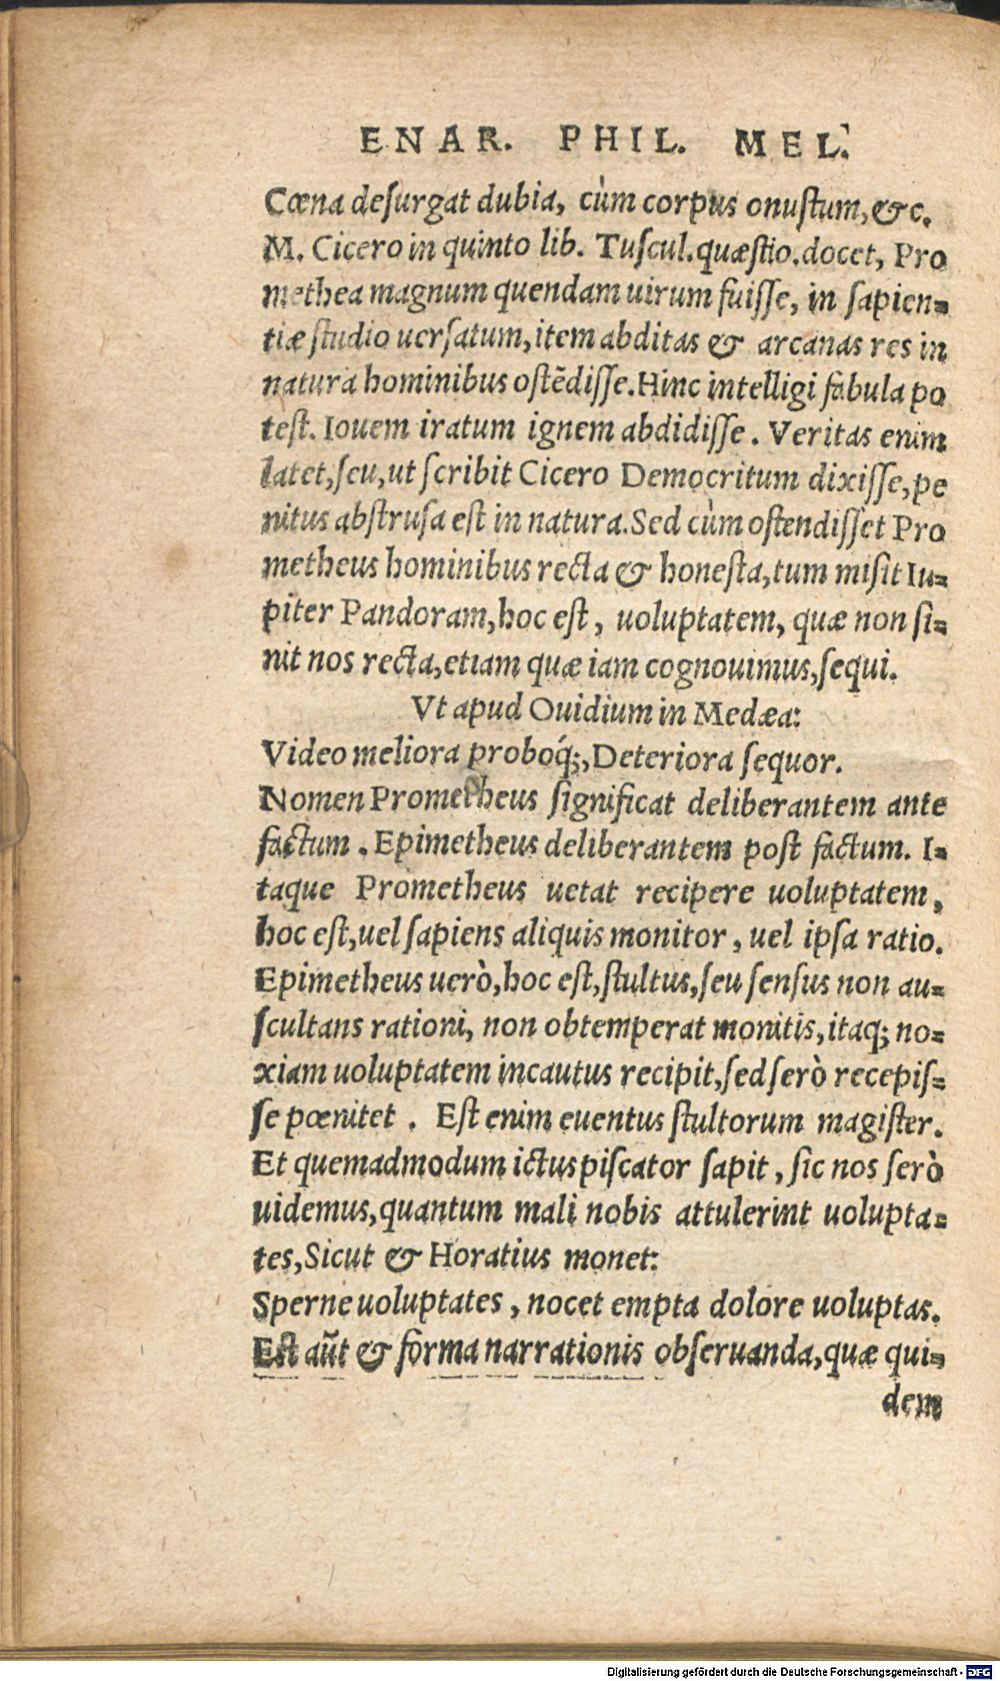 ENAR. PHIL. MEL.
Cœna desurgat dubia, cùm corpus onustum, &c.
M. Cicero in quinto lib. Tuscul. quæstio. docet, Pro
methea magnum quendam uirum fuisse, in sapien-
tiæ studio uersatum, item abditas & arcanas res in
natura hominibus ostẽdisse. Hinc intelligi fabula po
test. Iouem iratum ignem abdidisse. Veritas enim
latet, seu, ut scribit Cicero Democritum dixisse, pe
nitus abstrusa est in natura. Sed cùm ostendisset Pro
metheus hominibus recta & honesta, tum misit Iu-
piter Pandoram, hoc est, uoluptatem, quæ non si-
nit nos recta, etiam quæ iam cognouimus, sequi.
Vt apud Ouidium in Medæa:
Video meliora proboq́;, Deteriora sequor.
Nomen Prometheus significat deliberantem ante
factum. Epimetheus deliberantem post factum. I-
taque Prometheus uetat recipere uoluptatem,
hoc est, uel sapiens aliquis monitor, uel ipsa ratio.
Epimetheus uerò, hoc est, stultus, seu sensus non au-
scultans rationi, non obtemperat monitis, itaq; no-
xiam uoluptatem incautus recipit, sed serò recepis-
se pœnitet. Est enim euentus stultorum magister.
Et quemadmodum ictus piscator sapit, sic nos serò
uidemus, quantum mali nobis attulerint uolupta-
tes, Sicut & Horatius monet:
Sperne uoluptates, nocet empta dolore uoluptas.
Est aũt & forma narrationis obseruanda, quæ qui-
dem
Digitalisierung gefördert durch die Deutsche Forschungsgemeinschaft - DFG